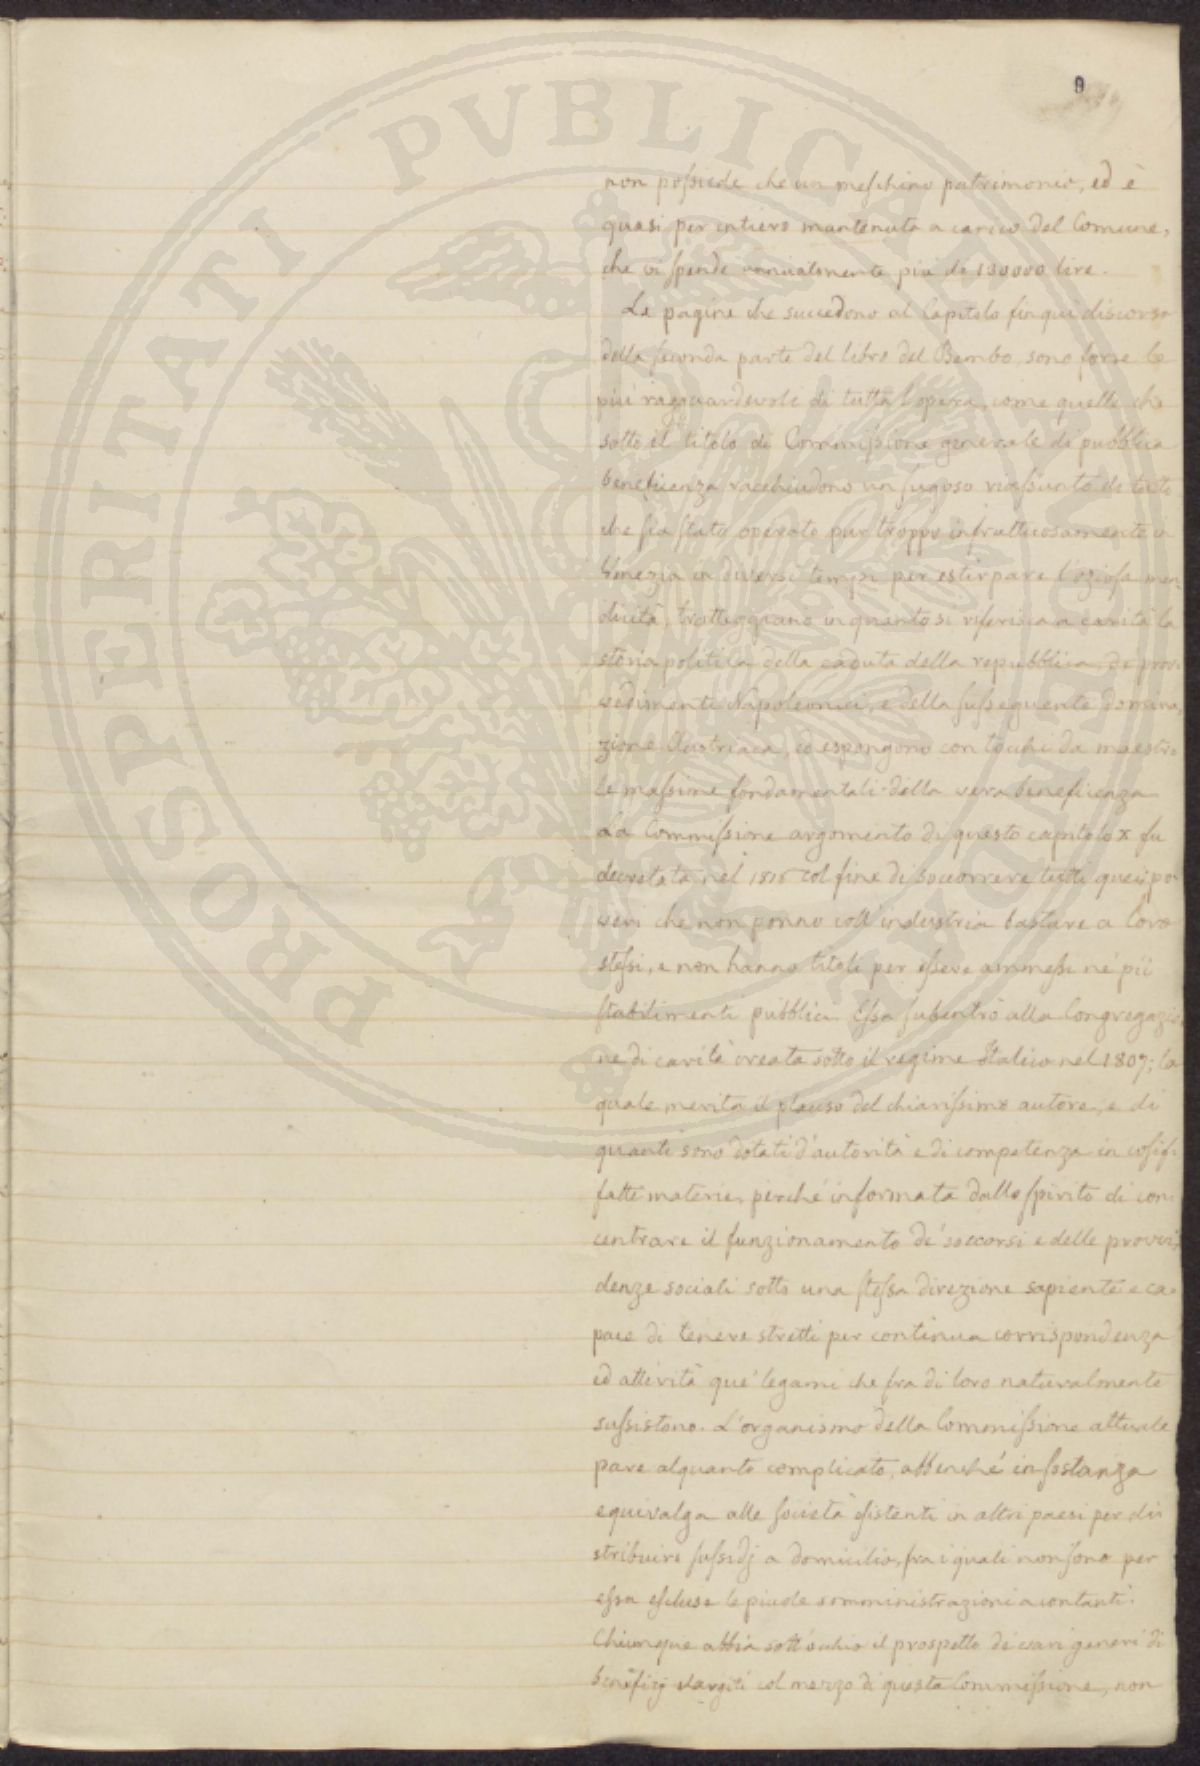 9
PROSPERITATI PUBLICAE AUGENDAE
non possiede che un meschino patrimonio, ed è
quasi per intiero mantenuta a carico del Comune,
che vi spende annualmente più di 130000 lire.
Le pagine che succedono al Capitolo fin qui discorso
della seconda parte del libro del Bembo, sono forse le
più ragguardevoli di tutta l'opera, come quelle che
sotto il titolo di Commissione generale di pubblica
beneficenza racchiudono un sugoso riassunto di tutto
che sia stato operato pur troppo infruttuosamente in
Venezia in diversi tempi per estirpare l'oziosa men
dicità, tratteggiano in quanto si riferisca a carità la
storia politica della caduta della repubblica, de' prov
vedimenti Napoleonici, e della susseguente domina
zione Austriaca, ed espongono con tocchi da maestro
le massime fondamentali della vera beneficenza
La Commissione argomento di questo capitolo x fu
decretata nel 1816 col fine di soccorrere tutti quei po
veri che non ponno coll'industria bastare a loro
stessi, e non hanno titoli per essere ammessi ne' pii
stabilimenti pubblici. Essa subentrò alla Congregazio
ne di carità creata sotto il regime Italico nel 1807; la
quale merita il plauso del chiarissimo autore, e di
quanti sono dotati d'autorità e di competenza in cosif
fatte materie, perché informata dallo spirito di con
centrare il funzionamento de' soccorsi e delle provvi
denze sociali sotto una stessa direzione sapiente e ca
pace di tenere stretti per continua corrispondenza
ed attività que' legami che fra di loro naturalmente
sussistono. L'organismo della Commissione attuale
pare alquanto complicato, abbenché in sostanza
equivalga alle società esistenti in altri paesi per di
stribuire sussidj a domicilio, fra i quali non sono per
essa escluse le piccole somministrazioni a contanti.
Chiunque abbia sott'occhio il prospetto dei vari generi di
benefizj largiti col mezzo di questa Commissione, non